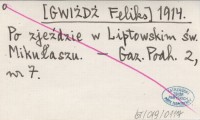 [GWIŻDŻ Feliks] 1914.
Po zjeździe w Liptowskim św.
Mikułaszu. — Gaz. Podh. 2,
nr 7.